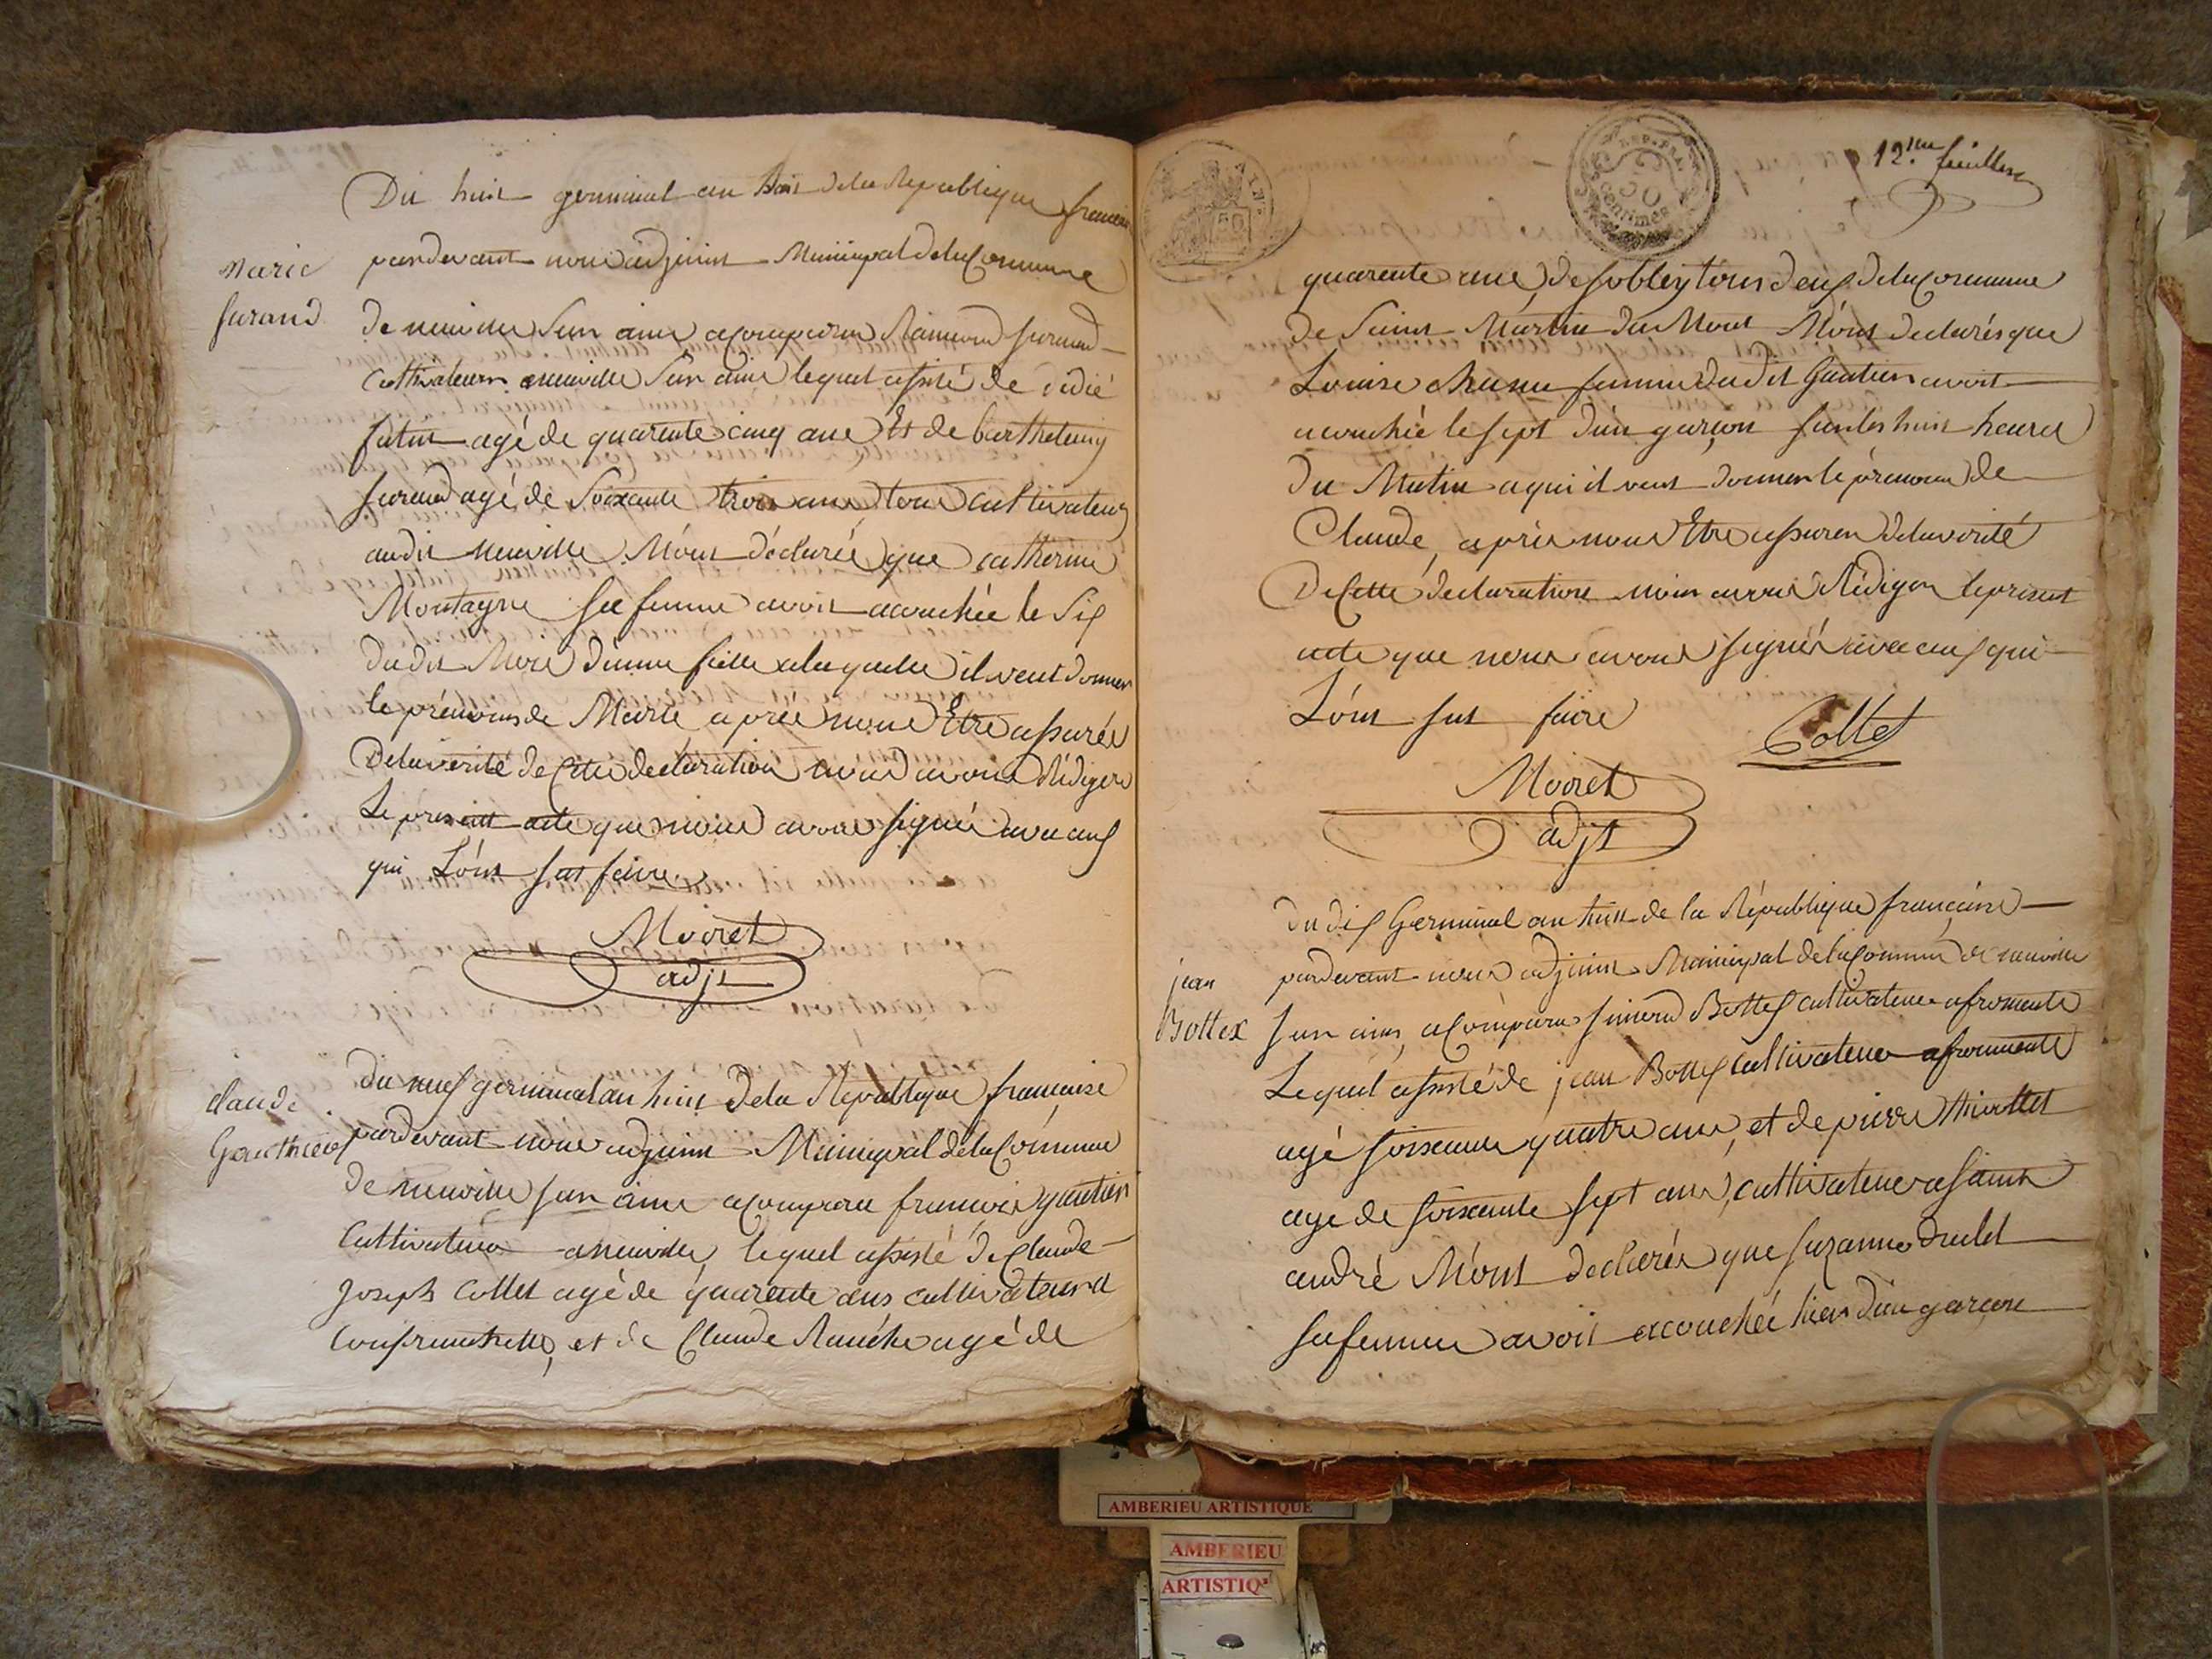 Du huit germinal an huit dela Republique francaise
Marie
Jurand
pardevant nous adjoint Municipal dela Commune
de neuville sur ains acomparu Raimond Jurand
Cultivateur aneuville sur ains lequel assisté de didié
agé de quarente cinq ans Et de barthelemy
Jurand agé de Soixante trois ans tous cultivateurs
audit neuville. M'ont déclarée que catherine
Montagne sa femme avoit acouchée le six
du dit Mois d'unne fille alaquelle il veut donner
le prénoms de Marie après nous Etre assurés
Dela vérité de Cette declaration nous avons Rédigers
Le present acte que nous avons signée avec eux
qui L'ont sut faire.
Moiret
adjt
claude
Gauthier
du neuf germinal an huit Dela Republique française
pardevant nous adjoint Municipal dela Commune
de neuville sur ains acomparu francois gautier
Cultivateur aneuville, lequel assisté de Claude
Joseph Collet agé de quarente ans cultivateur a
et de Claude agé de
12.me feuillere
50
centimes
quarente ans, de soblay tous deux dela Commune
de Saint Martin du Mont M'ont declarés que
Louise femme dudit Gautier avoit
acouchée le sept d'un garçon sur les huit heures
du Matin aqui il veut donner le prénom de
Claude, après nous Etre assurer dela verité
De Cette declaration nous avons Rédiger le present
acte que nous avons signés avec eux qui
L'ont sut faire
Collet
Moiret
adjt
du dix Germinal an huit de la République françaine
jean
Bottex
pardevant nous adjoint Municipal dela Commune de neuville
sur ains, acomparu Bottex cultivateur afromente
Lequel assisté de jean Bottex Cultivateur afromente
agé soixante quatre ans, et de pierre
age de soixante sept ans, cultivateur a saint
andré M'ont declarés que suzanne
sa femme avoit acouchée hier d'un garcon
AMBERIEU ARTISTIQUE
AMBERIEU
ARTISTIQe